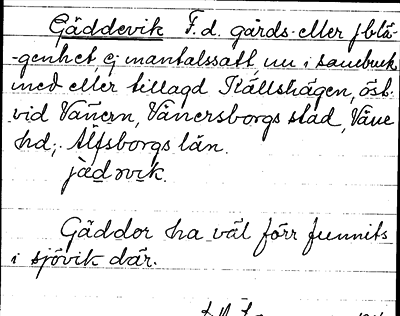 Gäddevik F.d. gårds- eller
-genhet, ej mantalssatt, nu i sambruk
med eller tillagd Källshagen, öst.
vid Vänern, Vänersborgs stad, Väne
hd; Älfsborgs län.
jädəvik.
Gäddor ha väl förr funnits
i sjövik där.